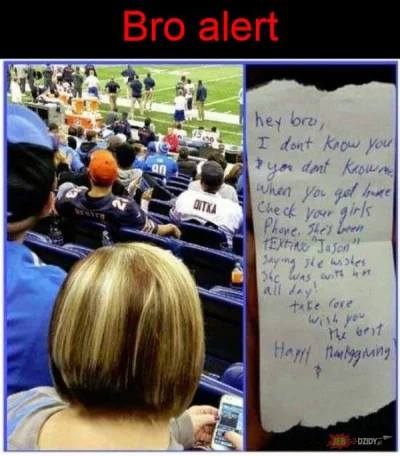 Bro alert
hey bro,
I dont know you
& you dont know me
when you get home
check your girls
Phone. She's been
tExting "Jason"
saying she wishes
she was with him
all day!
take care
wish you
the best
Happy
DITKA
HESTER
80
DZIDY